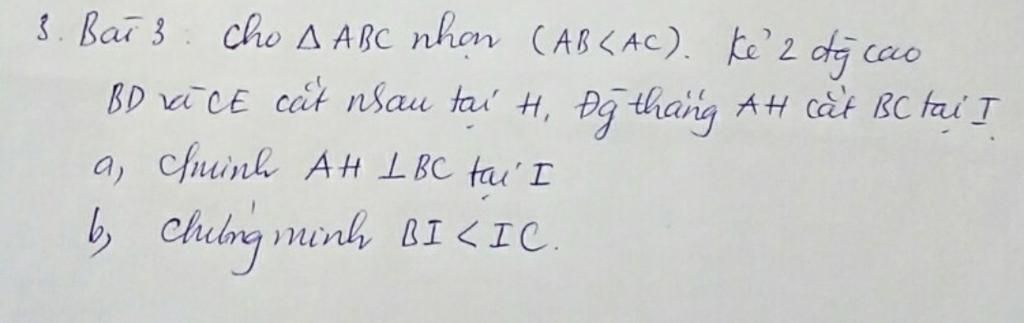 3. Bài 3: Cho Δ ABC nhọn (AB<AC). Kẻ 2 đg̃ cao
BD và CE cắt nhau tại H, Đg̃ thẳng AH cắt BC tại I
a, Cminh AH ⊥ BC tại I
b, Chứng minh BI < IC.